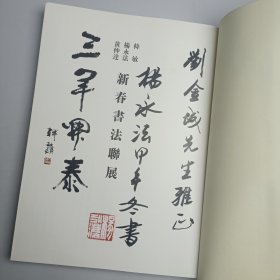 劉金城先生雅正
楊永法甲午冬書
楊永法
黃仲達
新春書法聯展
三羊開泰